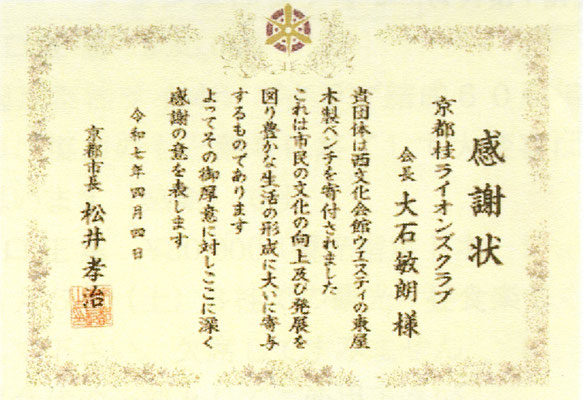 感謝状
京都桂ライオンズクラブ
会長 大石敏朗様
貴団体は西文化会館ウエスティの東屋
木製ベンチを寄付されました
これは市民の文化の向上及び発展を
図り豊かな生活の形成に大いに寄与
するものであります
よってその御厚意に対しここに深く
感謝の意を表します
令和七年四月四日
京都市長 松井孝治